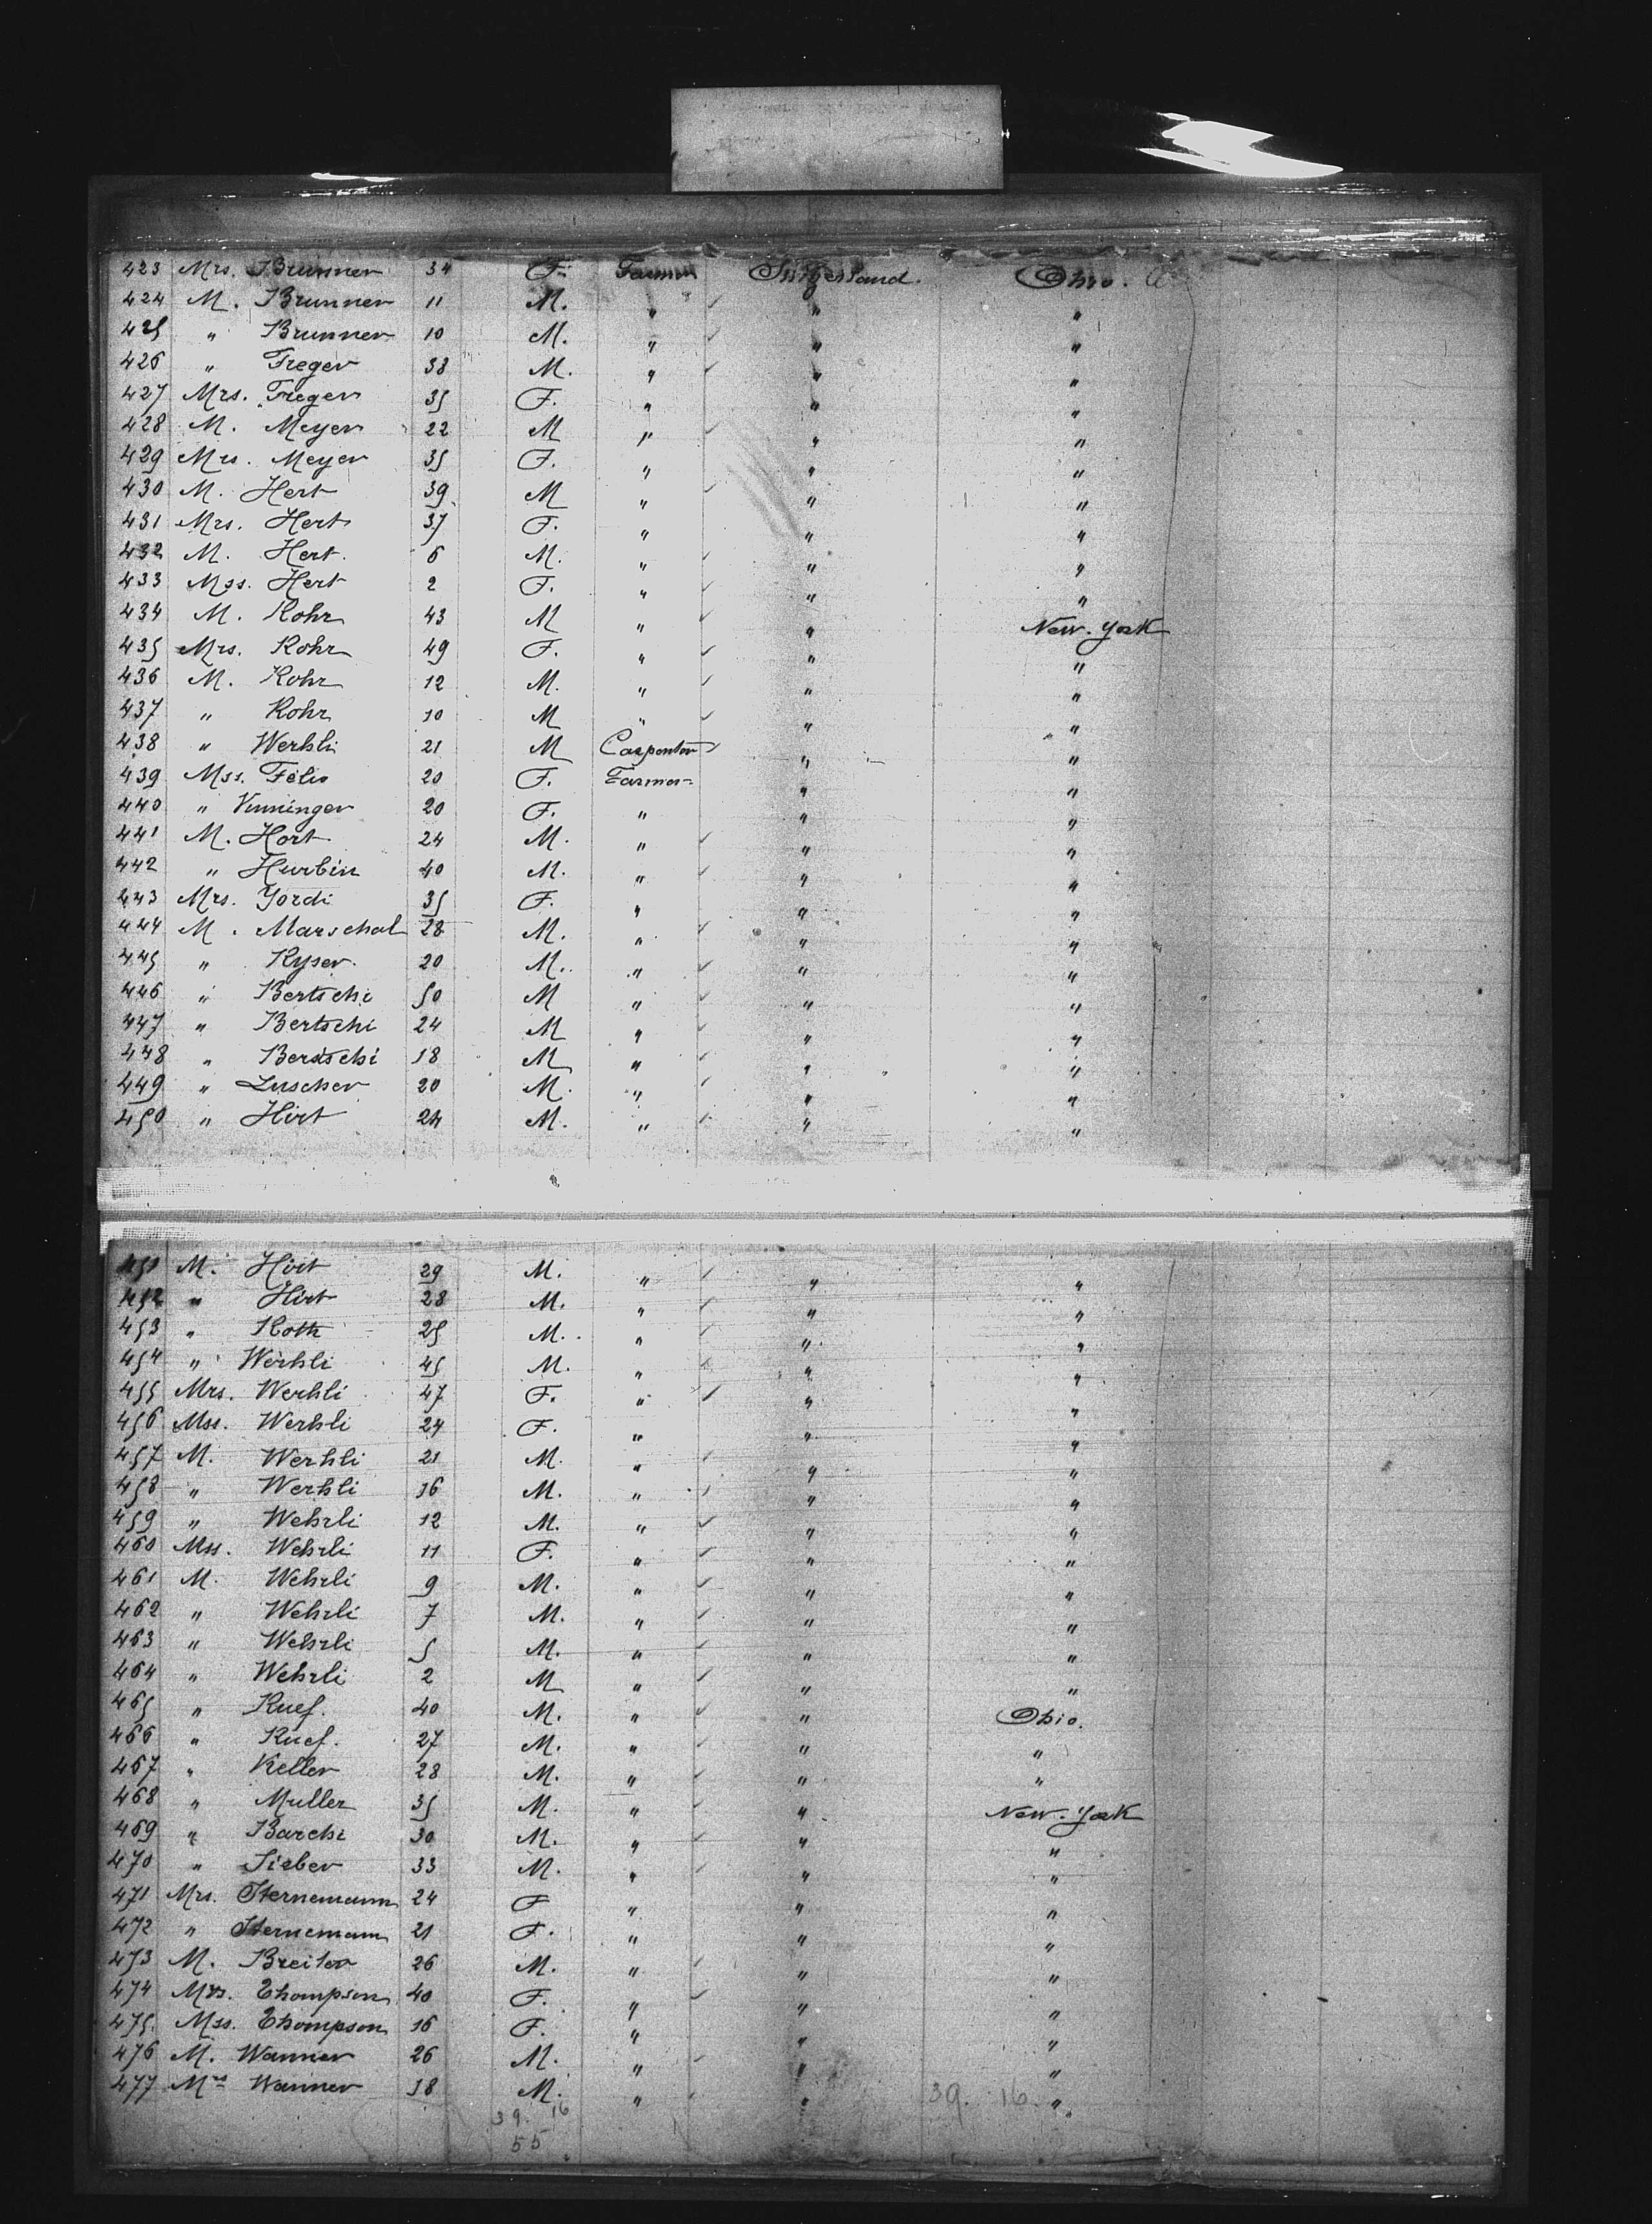 423 Mrs. Brunner 34 F. Farmer Switzerland. Ohio.
424 M. Brunner 11 M. " " "
425 " Brunner 10 M. " " "
426 " Treger 38 M. " " "
427 Mrs. Treger 35 F. " " "
428 M. Meyer 22 M " " "
429 Mrs. Meyer 35 F. " " "
430 M. Hert 39 M " " "
431 Mrs. Hert 37 F. " " "
432 M. Hert. 6 M. " " "
433 Mss. Hert 2 F. " " "
434 M. Rohr 43 M " " New-York
435 Mrs. Rohr 49 F. " " "
436 M. Rohr 12 M. " " "
437 " Rohr 10 M " " "
438 " Werhli 21 M Carpenter " "
439 Mss. Felis 20 F. Farmer " "
440 " Vinninger 20 F. " " "
441 M. Hort 24 M. " " "
442 " Hurbin 40 M. " " "
443 Mrs. Yordi 35 F. " " "
444 M. Marschal 28 M. " " "
445 " Kyser. 20 M. " " "
446 " Bertschi 50 M " " "
447 " Bertschi 24 M " " "
448 " Bertschi 18 M " " "
449 " Luscher 20 M. " " "
450 " Hirt 24 M. " " "
451 M. Hirt 29 M. " " "
452 " Hirt 28 M. " " "
453 " Roth 25 M. " " "
454 " Werhli 45 M. " " "
455 Mrs. Werhli 47 F. " " "
456 Mss. Werhli 24 F. " " "
457 M. Werhli 21 M. " " "
458 " Werhli 16 M. " " "
459 " Wehrli 12 M. " " "
460 Mss. Wehrli 11 F. " " "
461 M. Wehrli 9 M. " " "
462 " Wehrli 7 M. " " "
463 " Wehrli 5 M. " " "
464 " Wehrli 2 M " " "
465 " Ruef. 40 M. " " Ohio.
466 " Ruef. 27 M. " " "
467 " Keller 28 M. " " "
468 " Muller 35 M. " " New-York
469 " Barchi 30 M. " " "
470 " Sieber 33 M. " " "
471 Mrs. Sternemann 24 F " " "
472 " Sternemann 21 F. " " "
473 M. Breiter 26 M. " " "
474 Mrs. Thompson 40 F. " " "
475. Mss. Thompson 16 F. " " "
476 M. Wanner 26 M. " " "
477 Mrs Wanner 18 M. " " "
39. 16 39. 16
55